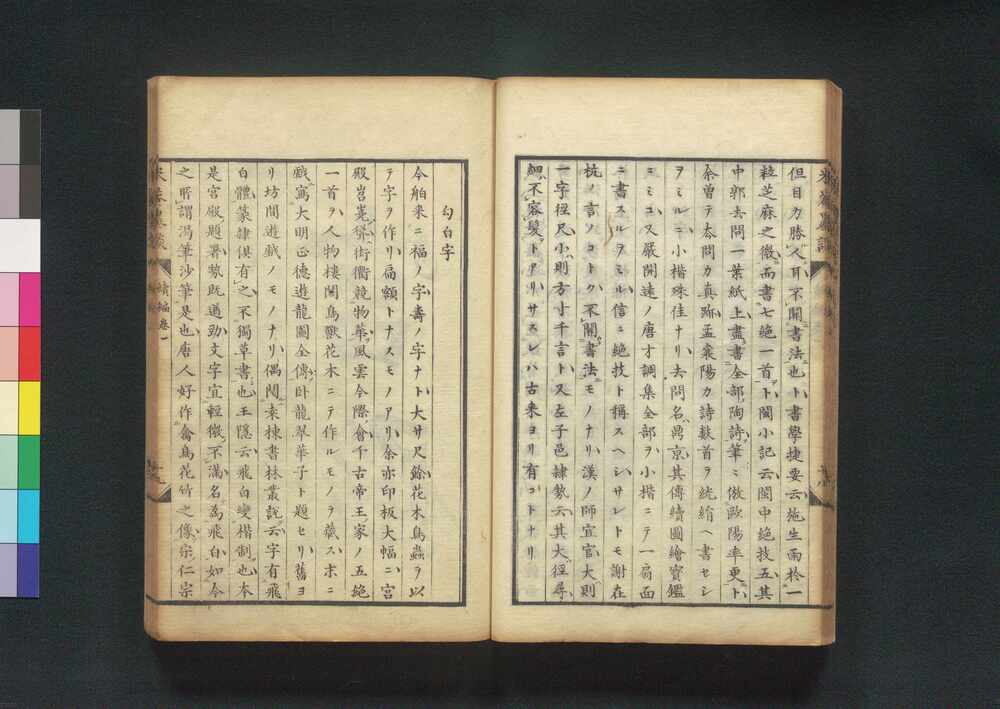 但目力勝人耳不關書法也ト書學捷要云施生雨於一
粒芝麻之微而書七絶一首ト閩小記云閩中絶技五其
中郭去問一葉紙上盡書全部陶詩筆ミ倣歐陽率更ト
余曽テ太問カ真跡孟襄陽カ詩數首ヲ統絹ヘ書セシ
ヲミルニ小楷殊佳ナリ去問名具京其傳續圖繪寶鑑
ニミユ又嚴開達ノ唐才調集全部ヲ小楷ニテ一扇面
ニ書スルヲミル信ニ絶技ト稱スヘシサレトモ謝在
杭ノ言ノコトク不關書法モノナリ漢ノ師宜官大則
一字徑尺小則方寸千言ト又左子邑隷勢云其大徑尋
細不容髮トアリサスレハ古来ヨリ有コトナリ
勾白字
今舶来ニ福ノ字壽ノ字ナト大サ尺餘花木鳥蟲ヲ以
テ字ヲ作リ扁額トナスモノアリ余亦印板大幅ニ宮
殿岧嶤 街衢競物華風雲今際會千古帝王家ノ五絶
一首ヲ人物樓閣鳥獸花木ニテ作ルモノヲ藏ス末ニ
戲寫大明正德遊龍圖全傳卧龍翠華子ト題セリ舊ヨ
リ坊間遊戯ノモノナリ偶閲棗棟書林叢説云字有飛
白體篆隷倶有之不獨草書也王隱云飛白變楷制也本
是宮殿題署勢既遒勁文字宜輕微不滿名為飛白如今
之所謂渴筆沙筆是也唐人好作禽鳥花竹之像宗仁宗
續編巻一